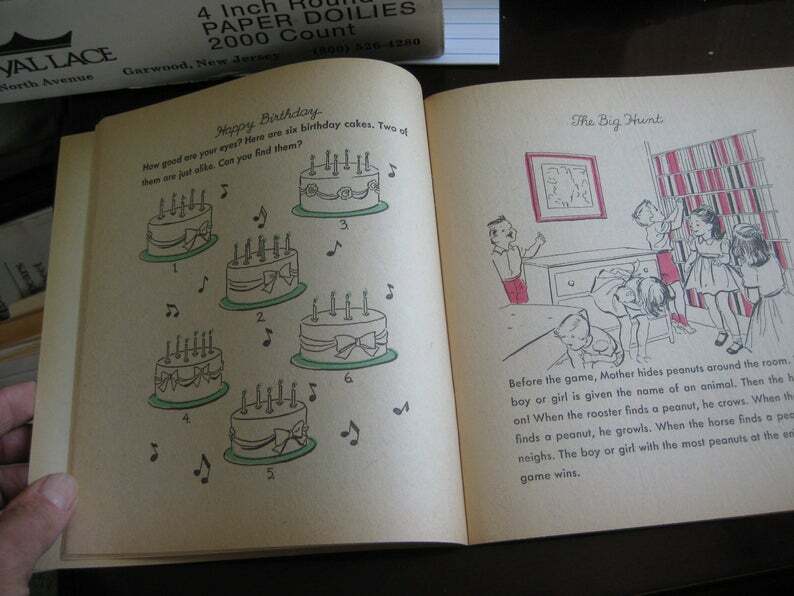 4 Inch Round
PAPER DOILIES
2000 Count
YAL LACE
North Avenue Garwood, New Jersey (800) 526-4280
Happy Birthday
How good are your eyes? Here are six birthday cakes. Two of
them are just alike. Can you find them?
3.
1.
2.
6.
4.
5.
The Big Hunt
Before the game, Mother hides peanuts around the room.
boy or girl is given the name of an animal. Then the h
on! When the rooster finds a peanut, he crows. When the
finds a peanut, he growls. When the horse finds a pea
neighs. The boy or girl with the most peanuts at the en
game wins.